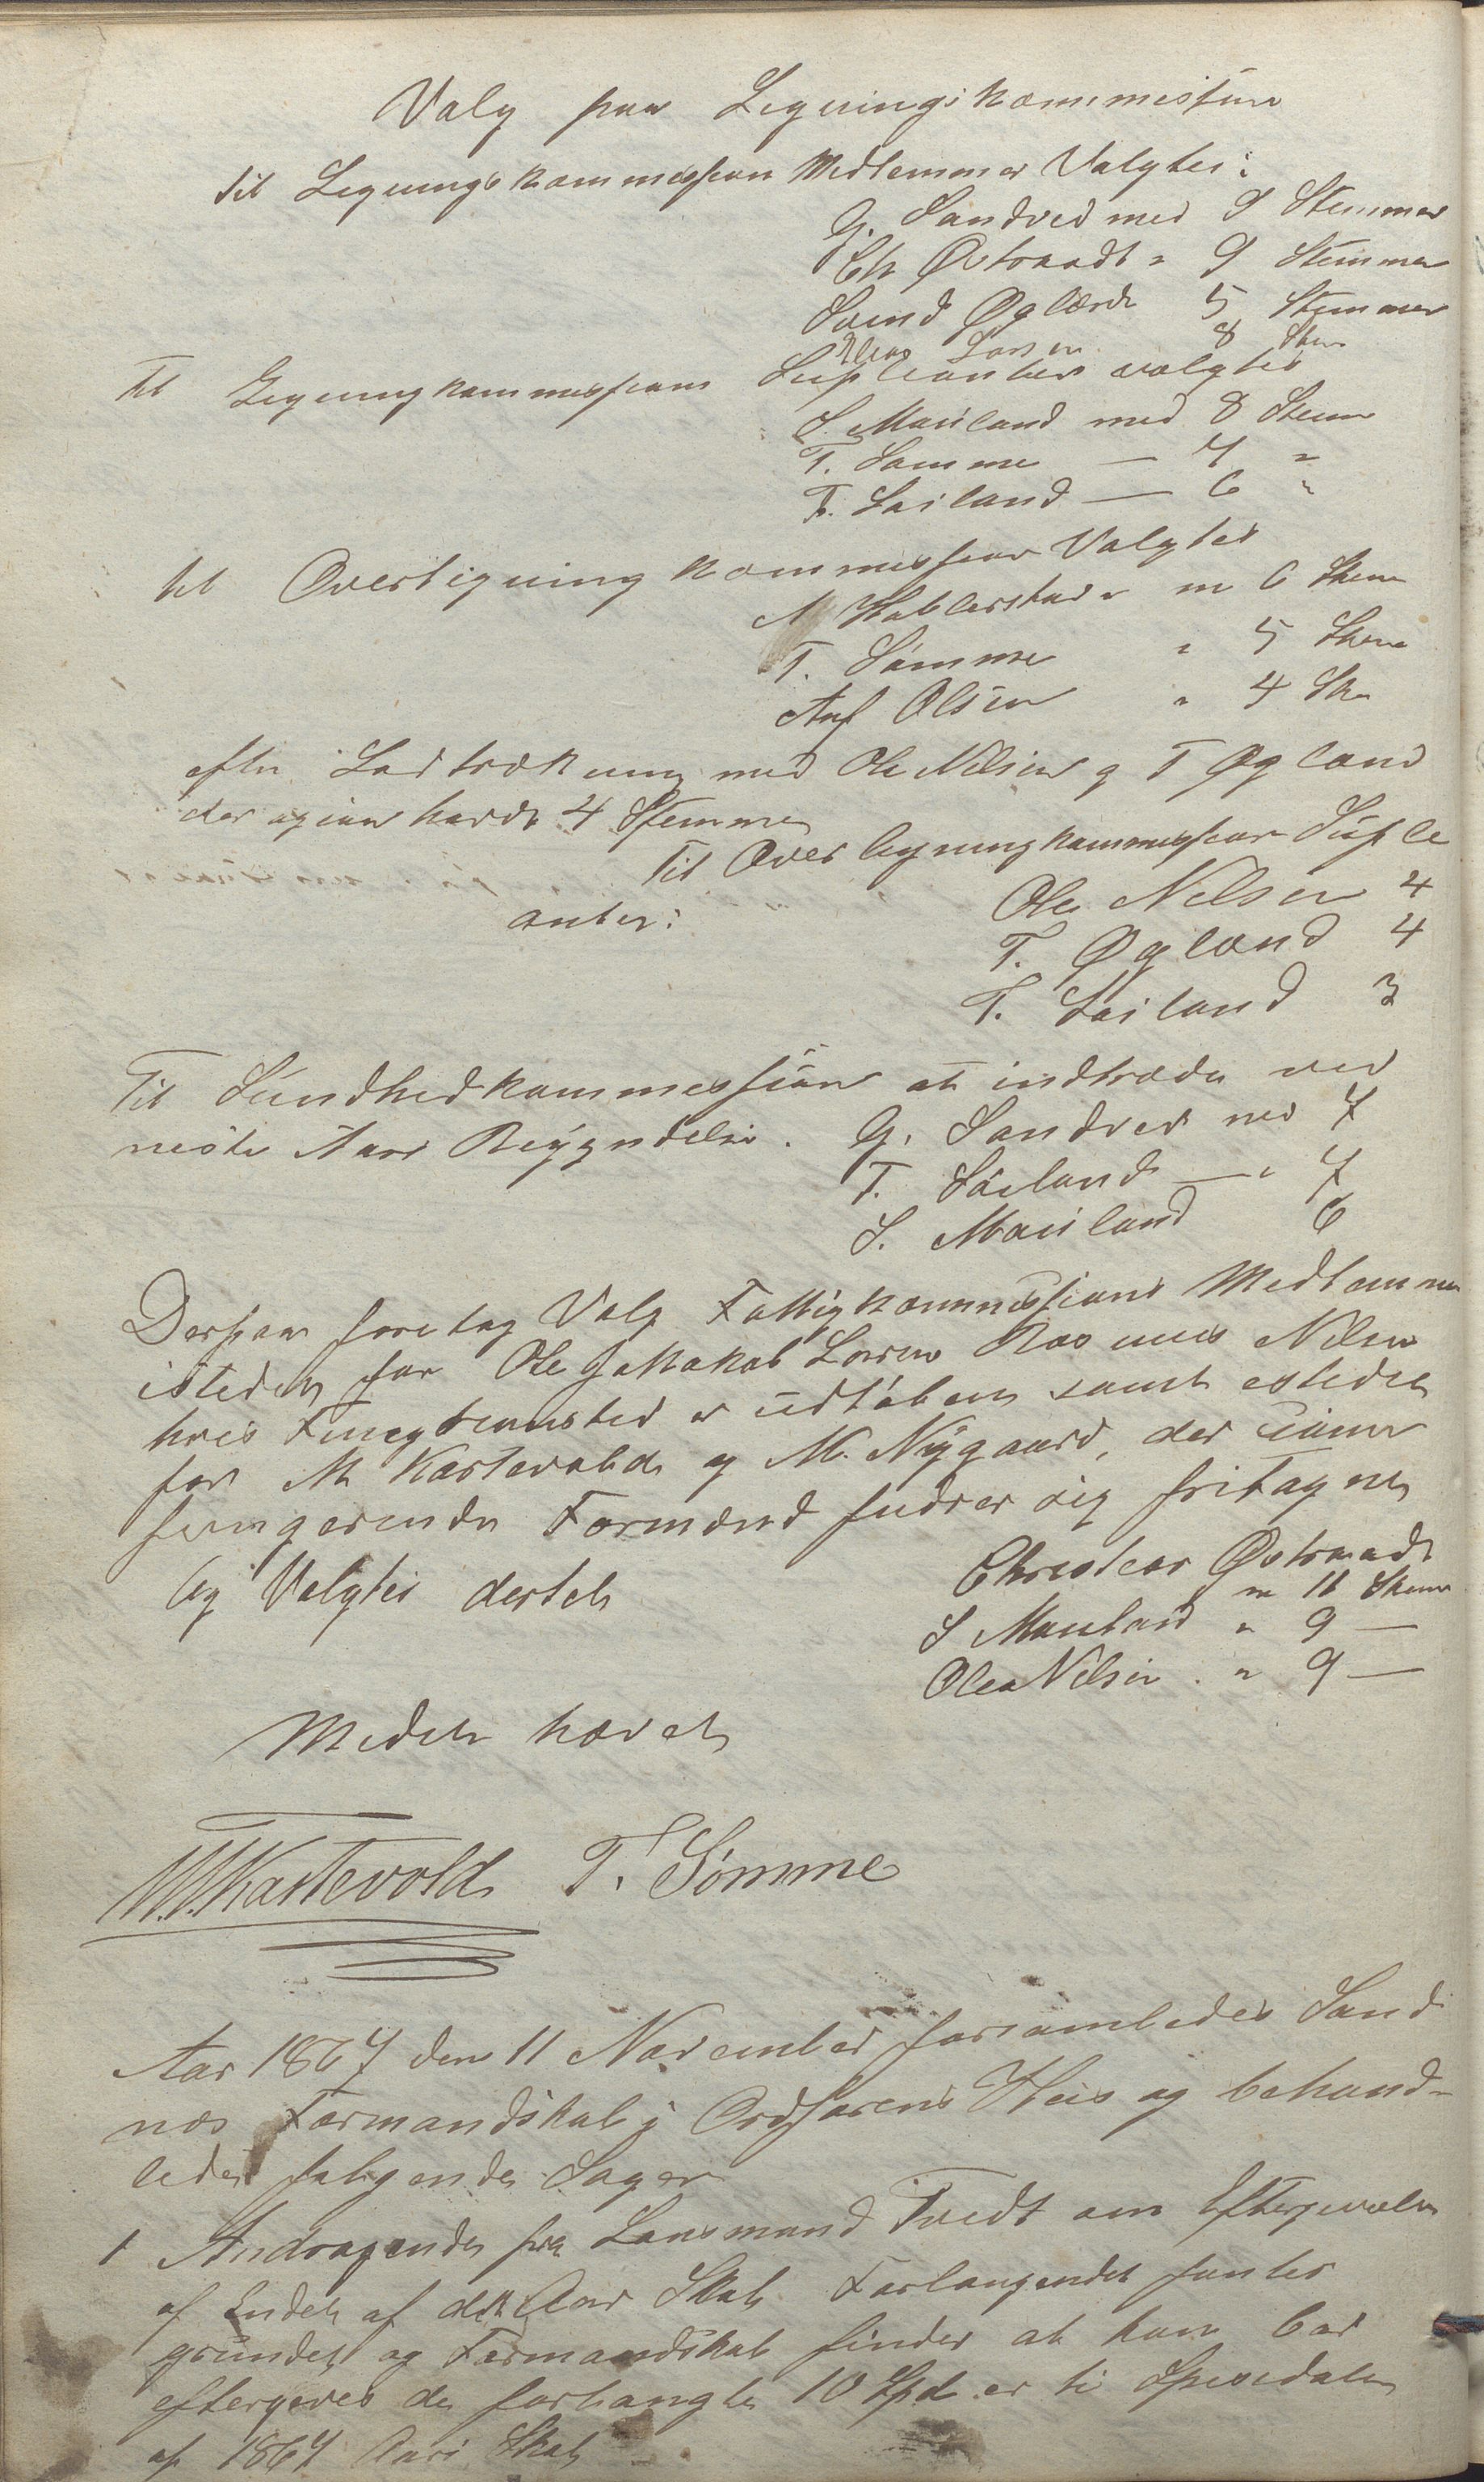 Valg paa Ligningskommision
til Ligningskommission Medlemmer Valgtes:
G. Sandved med 9 Stemmer
Ch Østraadt " 9 Stemmer
Svend Øglænd 5 Stemmer
Elias Larsen 8 Stem
Til Ligningkommissions Suplianter valgtes
S. Mauland med 8 Stem
T. Sømme — 7 "
T. Lailand — 6 "
til Overligning kommission Valgtes
A Hablerstad m 6 Stem
T. Sømme " 5 Stem
Asf Olsen " 4 Ste
efter Lodtrækning med Ole Nilsen og T Øgland
der ogsaa havde 4 Stemmer
Til Overligningkommission Suple
anter:
Ole Nilsen 4
T. Øgland 4
T. Lailand 3
Til Sundhedkommession at indtræde ved
neste Aars Begyndelse. G. Sandved med 7
T. Lailand — " 7
S. Mauland 6
Derpaa foretog Valg Fattigkommissions Medlemmer
isteden for Ole Jakkob Larsen Rasmus Nilsen
hvis Fungtionstid er udløben samt estedet
for M Kastevold og M. Nygaard, der som
fungerende Formænd fudrer sig fritagne
Og Valgtes dertil
Christian Østraadt
m 11 Stem
S Mauland " 9 —
Ole Nilsen " 9 —
Mødet hævet
M. Kastevold T. Sømme
Aar 1867 den 11 November forsamledes Sand
nes Formandskab i Ordførens Hus og behand-
ledes følgende Sager
1 Andragende fra Lensmand Tvedt om Eftergivelse
af Endel af dette Aar Skat. Forlangendet fantes
grundet og Formandskab finder at han bør
eftergives de forlangte 10 Spd er ti Speciedaler
af 1867 Aars Skat